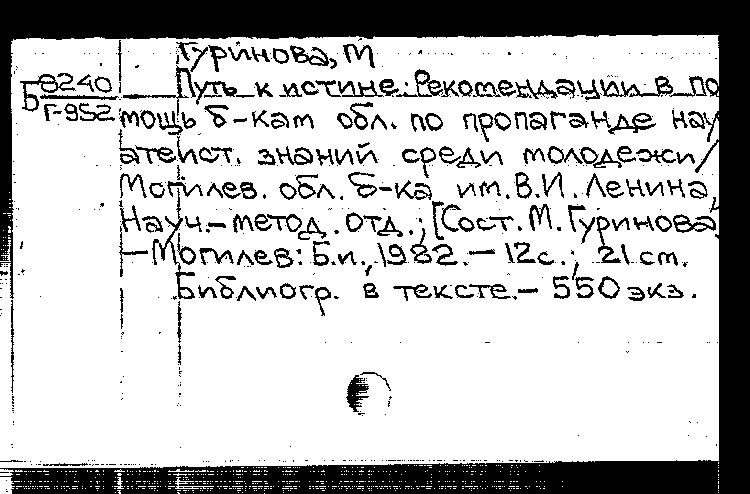 Гуринова, М
Б 8240 Путь к истине: Рекомендации в по
Г-952 мощь б-кам обл. по пропаганде нау
атеист. знаний среди молодежи/
Могилев. обл. б-ка им. В.И. Ленина,
Науч.-метод. отд.; [Сост. М. Гуринова]
—Могилев: Б.и., 1982.— 12с.; 21 cm.
Библиогр. в тексте.— 550 экз.